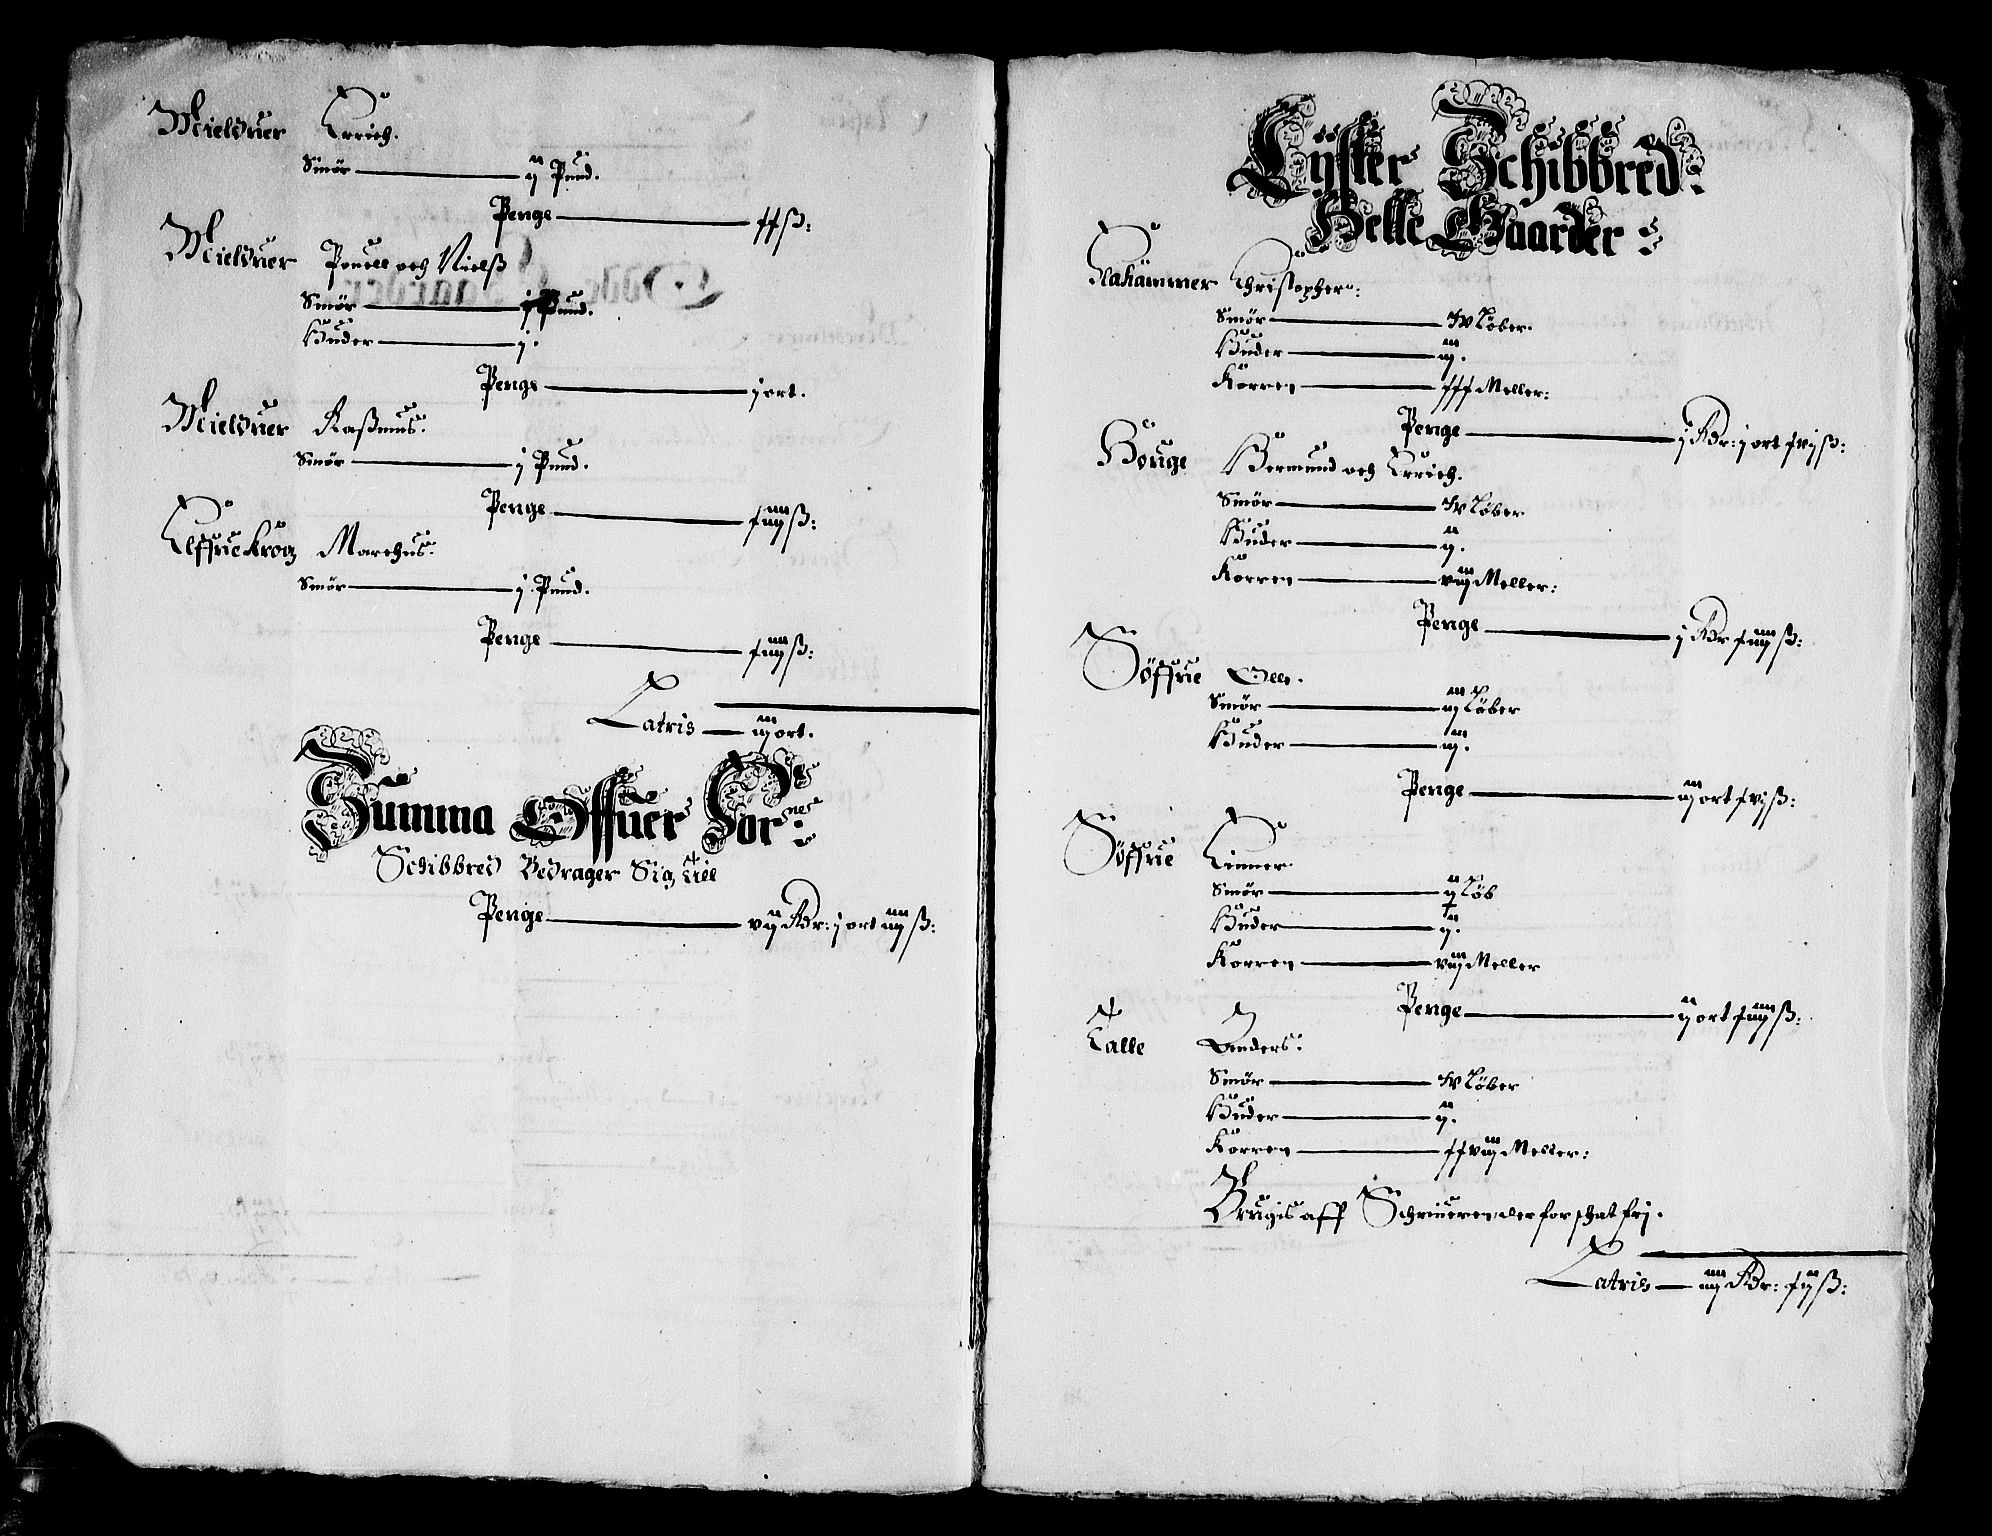 Mielduer Errich.
Smør ij Pund.
Penge xxß:
Mielduer Pouell och Nielß
Smør j Pund.
Huder j.
Penge j ort.
Mielduer Raßmus.
Smør j Pund.
Penge xiiijß:
Elffuekrog Marchus.
Smør j Pund.
Penge xiiijß:
Latris iij ort.
Summa Offuer For:nes
Schibbred Bedrager Sig till
Penge vij Rdr: j ort iiijß:
Lÿster Schibbred:
Helle Gaarder:
Christopher:
Smør iv Løber.
Huder iij.
Korren xxx Meller:
Penge j Rdr: j ort xvjß:
Houge Bermund och Errich.
Smør iv Løber
Huder ij.
Korren viij Meller:
Penge j Rdr xiiijß:
Søffue Olle.
Smør iij Løber
Huder iij.
Penge iij ort xvjß:
Søffue Einner.
Smør ij Løb
Huder ij.
Korren viij Meller
Penge ij ort xiiijß:
Talle Anders.
Smør iv Løber
Huder ij.
Korren xxviij Meller:
Brugis aff Schriueren, derfor schat frj.
Latris iiij Rdr: xijß: